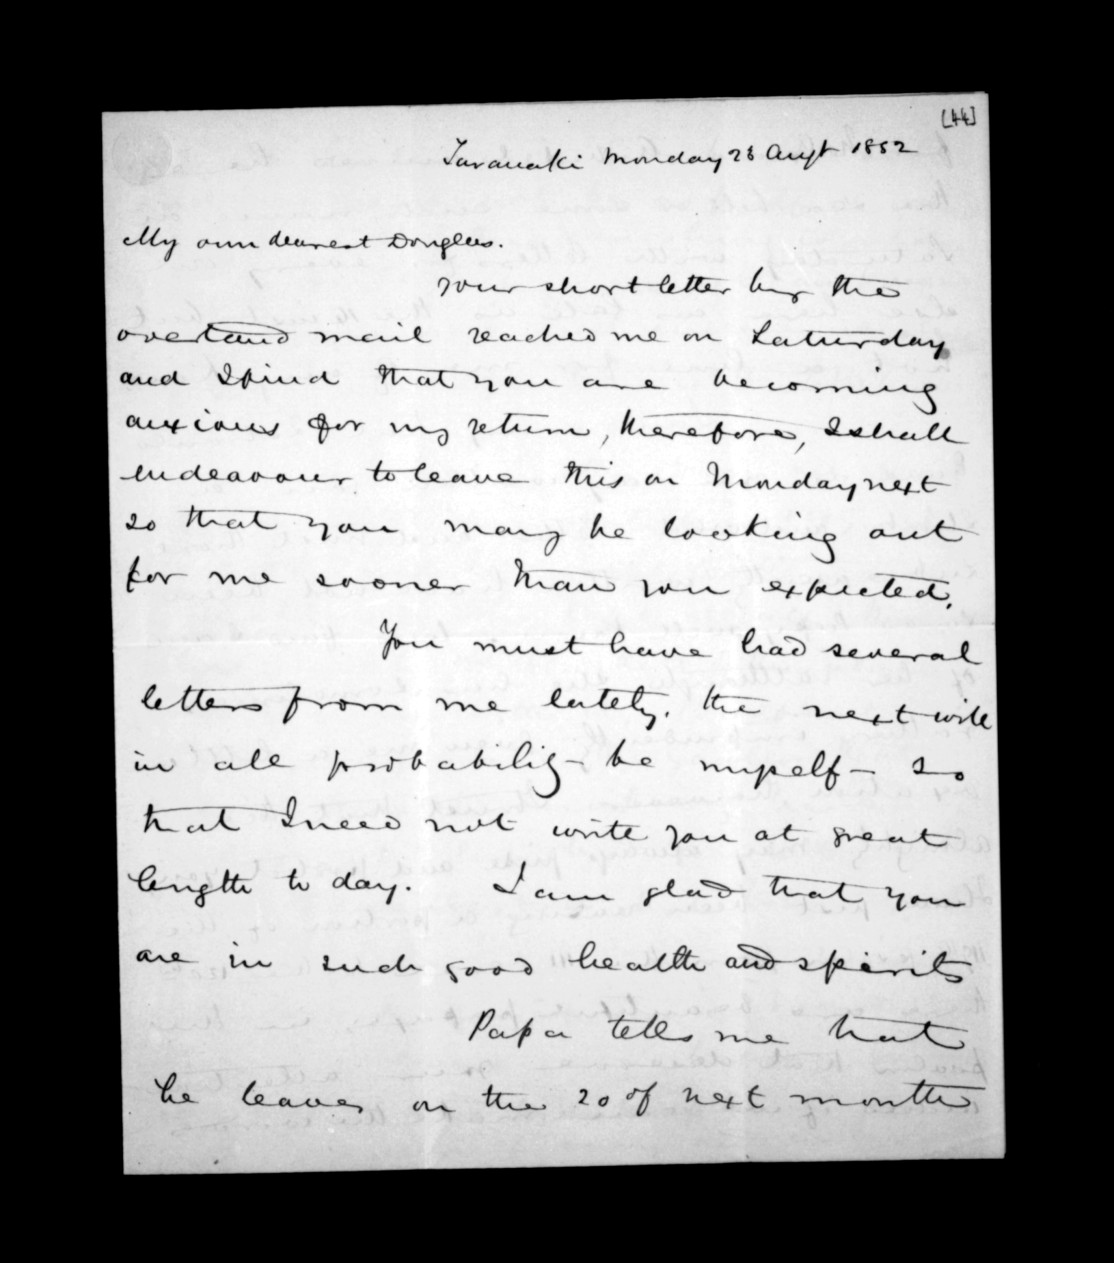 [44]
Taranaki Monday 23 Augt 1852
My own dearest Douglas.
your short letter by the
overland mail reached me on Saturday
and I find that you are becoming
anxious for my return, therefore, I shall
endeavour to leave this on Monday next
so that you may be looking out
for me sooner than you expected.
You must have had several
letters from me lately. the next will
in all probability be myself - so
that I need not write you at great
length to day. I am glad that you
are in such good health and spirits
Papa tells me that
he leaves on the 20 of next month